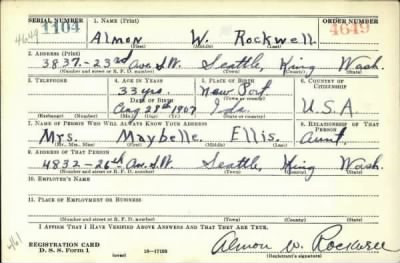 SERIAL NUMBER 1. NAME (Print) ORDER NUMBER
1104 Almon W. Rockwell 4649
4649 (First) (Middle) (Last)
2. ADDRESS (Print)
3837-23rd Ave. S.W. Seattle, King Wash.
(Number and street or R. F. D. number) (Town) (County) (State)
3. TELEPHONE 4. AGE IN YEARS 5. PLACE OF BIRTH 6. COUNTRY OF CITIZENSHIP
33 yrs. New Port
DATE OF BIRTH (Town or county)
Aug 28th 1907 Ida. U.S.A.
(Exchange) (Number) (Mo.) (Day) (Yr.) (State or country)
7. NAME OF PERSON WHO WILL ALWAYS KNOW YOUR ADDRESS 8. RELATIONSHIP OF THAT PERSON
Mrs. Maybelle Ellis. Aunt.
(Mr., Mrs., Miss) (First) (Middle) (Last)
9. ADDRESS OF THAT PERSON
4832-26th Ave. S.W. Seattle, King Wash.
(Number and street or R. F. D. number) (Town) (County) (State)
10. EMPLOYER'S NAME
11. PLACE OF EMPLOYMENT OR BUSINESS
(Number and street or R. F. D. number) (Town) (County) (State)
I AFFIRM THAT I HAVE VERIFIED ABOVE ANSWERS AND THAT THEY ARE TRUE.
REGISTRATION CARD
D. S. S. Form 1 16-17105 Almon W. Rockwell
(over) (Registrant's signature)